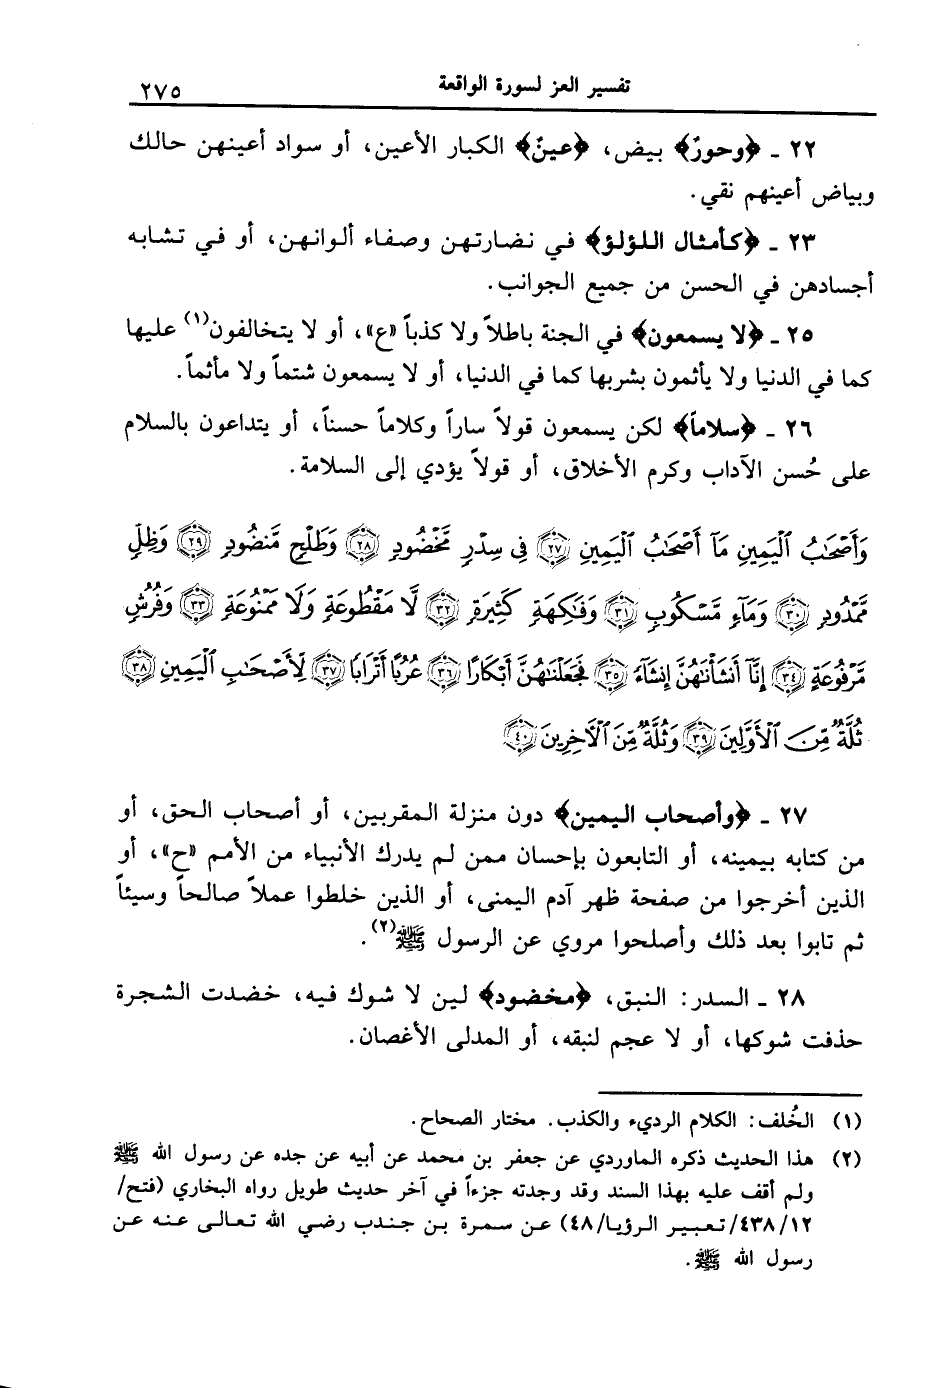 تفسير العز لسورة الواقعة
٢٧٥
٢٢ ـ ﴿وحورٌ﴾ بيض، ﴿عينٌ﴾ الكبار الأعين، أو سواد أعينهن حالك
وبياض أعينهم نقي.
٢٣ ـ ﴿كأمثال اللؤلؤ﴾ في نضارتهن وصفاء ألوانهن، أو في تشابه
أجسادهن في الحسن من جميع الجوانب.
٢٥ ـ ﴿لا يسمعون﴾ في الجنة باطلاً ولا كذباً «ع»، أو لا يتخالفون(١) عليها
كما في الدنيا ولا يأثمون بشربها كما في الدنيا، أو لا يسمعون شتماً ولا مأثماً.
٢٦ ـ ﴿سلاماً﴾ لكن يسمعون قولاً ساراً وكلاماً حسناً، أو يتداعون بالسلام
على حُسن الآداب وكرم الأخلاق، أو قولاً يؤدي إلى السلامة.
وَأَصْحَٰبُ ٱلْيَمِينِ مَآ أَصْحَٰبُ ٱلْيَمِينِ ﴿٢٧﴾ فِى سِدْرٍ مَّخْضُودٍ ﴿٢٨﴾ وَطَلْحٍ مَّنضُودٍ ﴿٢٩﴾ وَظِلٍّ
مَّمْدُودٍ ﴿٣٠﴾ وَمَآءٍ مَّسْكُوبٍ ﴿٣١﴾ وَفَٰكِهَةٍ كَثِيرَةٍ ﴿٣٢﴾ لَّا مَقْطُوعَةٍ وَلَا مَمْنُوعَةٍ ﴿٣٣﴾ وَفُرُشٍ
مَّرْفُوعَةٍ ﴿٣٤﴾ إِنَّآ أَنشَأْنَٰهُنَّ إِنشَآءً ﴿٣٥﴾ فَجَعَلْنَٰهُنَّ أَبْكَارًا ﴿٣٦﴾ عُرُبًا أَتْرَابًا ﴿٣٧﴾ لِّأَصْحَٰبِ ٱلْيَمِينِ ﴿٣٨﴾
ثُلَّةٌ مِّنَ ٱلْأَوَّلِينَ ﴿٣٩﴾ وَثُلَّةٌ مِّنَ ٱلْآخِرِينَ ﴿٤٠﴾
٢٧ ـ ﴿وأصحاب اليمين﴾ دون منزلة المقربين، أو أصحاب الحق، أو
من كتابه بيمينه، أو التابعون بإحسان ممن لم يدرك الأنبياء من الأمم «ح»، أو
الذين أخرجوا من صفحة ظهر آدم اليمنى، أو الذين خلطوا عملاً صالحاً وسيئاً
ثم تابوا بعد ذلك وأصلحوا مروي عن الرسول ﷺ(٢).
٢٨ ـ السدر: النبق، ﴿مخضود﴾ لين لا شوك فيه، خضدت الشجرة
حذفت شوكها، أو لا عجم لنبقه، أو المدلى الأغصان.
(١) الخُلف: الكلام الرديء والكذب. مختار الصحاح.
(٢) هذا الحديث ذكره الماوردي عن جعفر بن محمد عن أبيه عن جده عن رسول الله ﷺ
ولم أقف عليه بهذا السند وقد وجدته جزءاً في آخر حديث طويل رواه البخاري (فتح/
١٢/٤٣٨/تعبير الرؤيا/٤٨) عن سمرة بن جندب رضي الله تعالى عنه عن
رسول الله ﷺ.